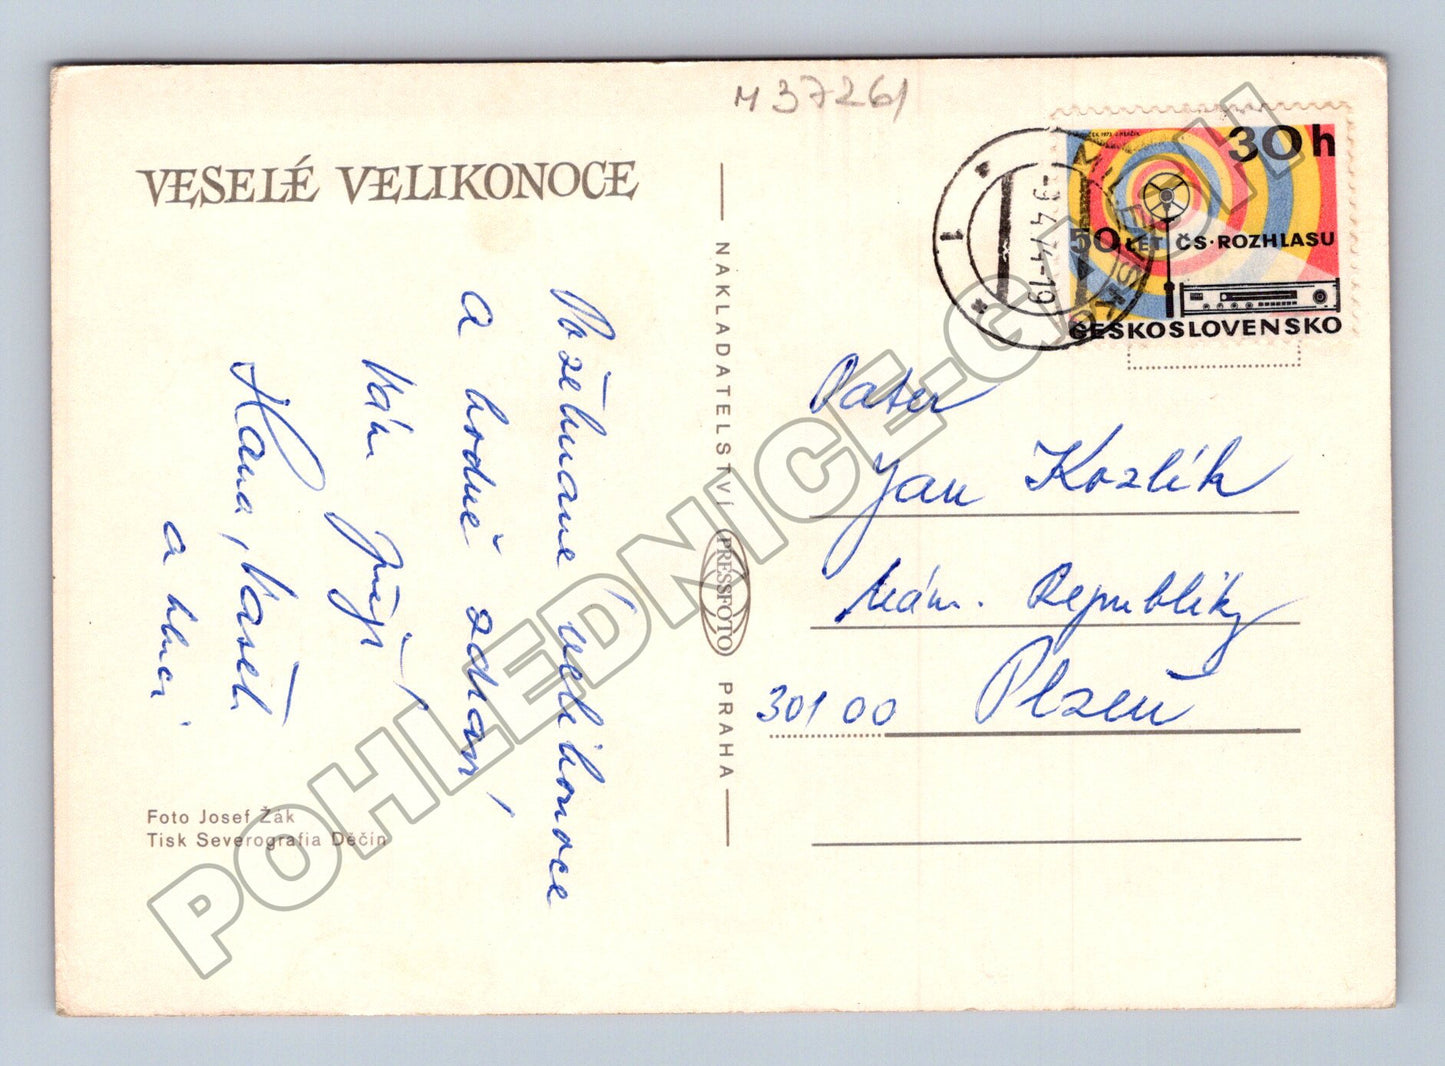 M 37261
VESELÉ VELIKONOCE
Požehnané velikonoce
a hodně zdraví
Vám přejí
Hana, Vašek
a kluci
Foto Josef Žák
Tisk Severografia Děčín
NAKLADATELSTVÍ PRESSFOTO PRAHA
MILEVSKO
-9.4.74-19
1
30h
50 LET ČS·ROZHLASU
ČESKOSLOVENSKO
Pater
Jan Kozlík
Nám. Republiky
301 00 Plzeň
POHLEDNICE-GALAX